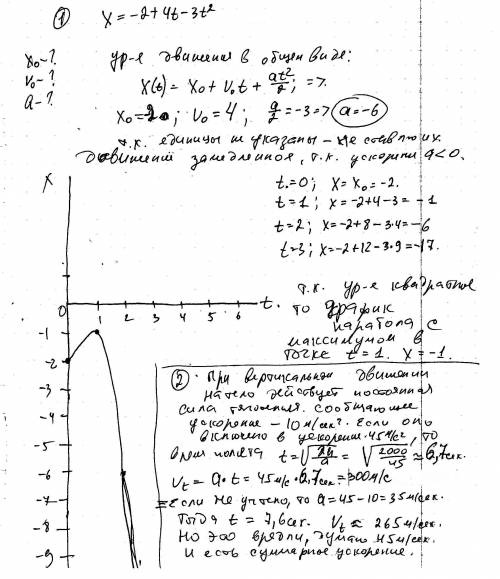 ① x = -2 + 4t - 3t²
x₀ - ?
v₀ - ?
a - ?
ур-е движения в общем виде:
x(t) = x₀ + v₀t + at²/2; =>
x₀ = 2; v₀ = 4; a/2 = -3 => a = -6
т.к. единицы не указаны - не ставлю их.
Движение замедленное, т.к. ускорение a < 0.
t = 0; x = x₀ = -2.
t = 1; x = -2 + 4 - 3 = -1
t = 2; x = -2 + 8 - 3·4 = -6
t = 3; x = -2 + 12 - 3·9 = -17.
т.к. ур-е квадратное
то график
парабола с
максимумом в
точке t = 1. x = -1.
x
0 1 2 3 4 5 6 t.
-1
-2
-2
-4
-5
-6
-7
-8
-9
② При вертикальном движении
на тело действует постоянная
сила тяготения, сообщающее
ускорение - 10 м/сек². Если оно
включено в ускорение 45 м/с², то
время полёта t = √(2h/a) = √(2000/45) ≈ 6,7 сек.
Vt = a·t = 45 м/с · 6,7 сек = 300 м/с
Если не учтено, то a = 45 - 10 = 35 м/сек.
Тогда t = 7,6 сек. Vt ≈ 265 м/сек.
Но это врядли, думаю 45 м/сек.
и есть суммарное ускорение.